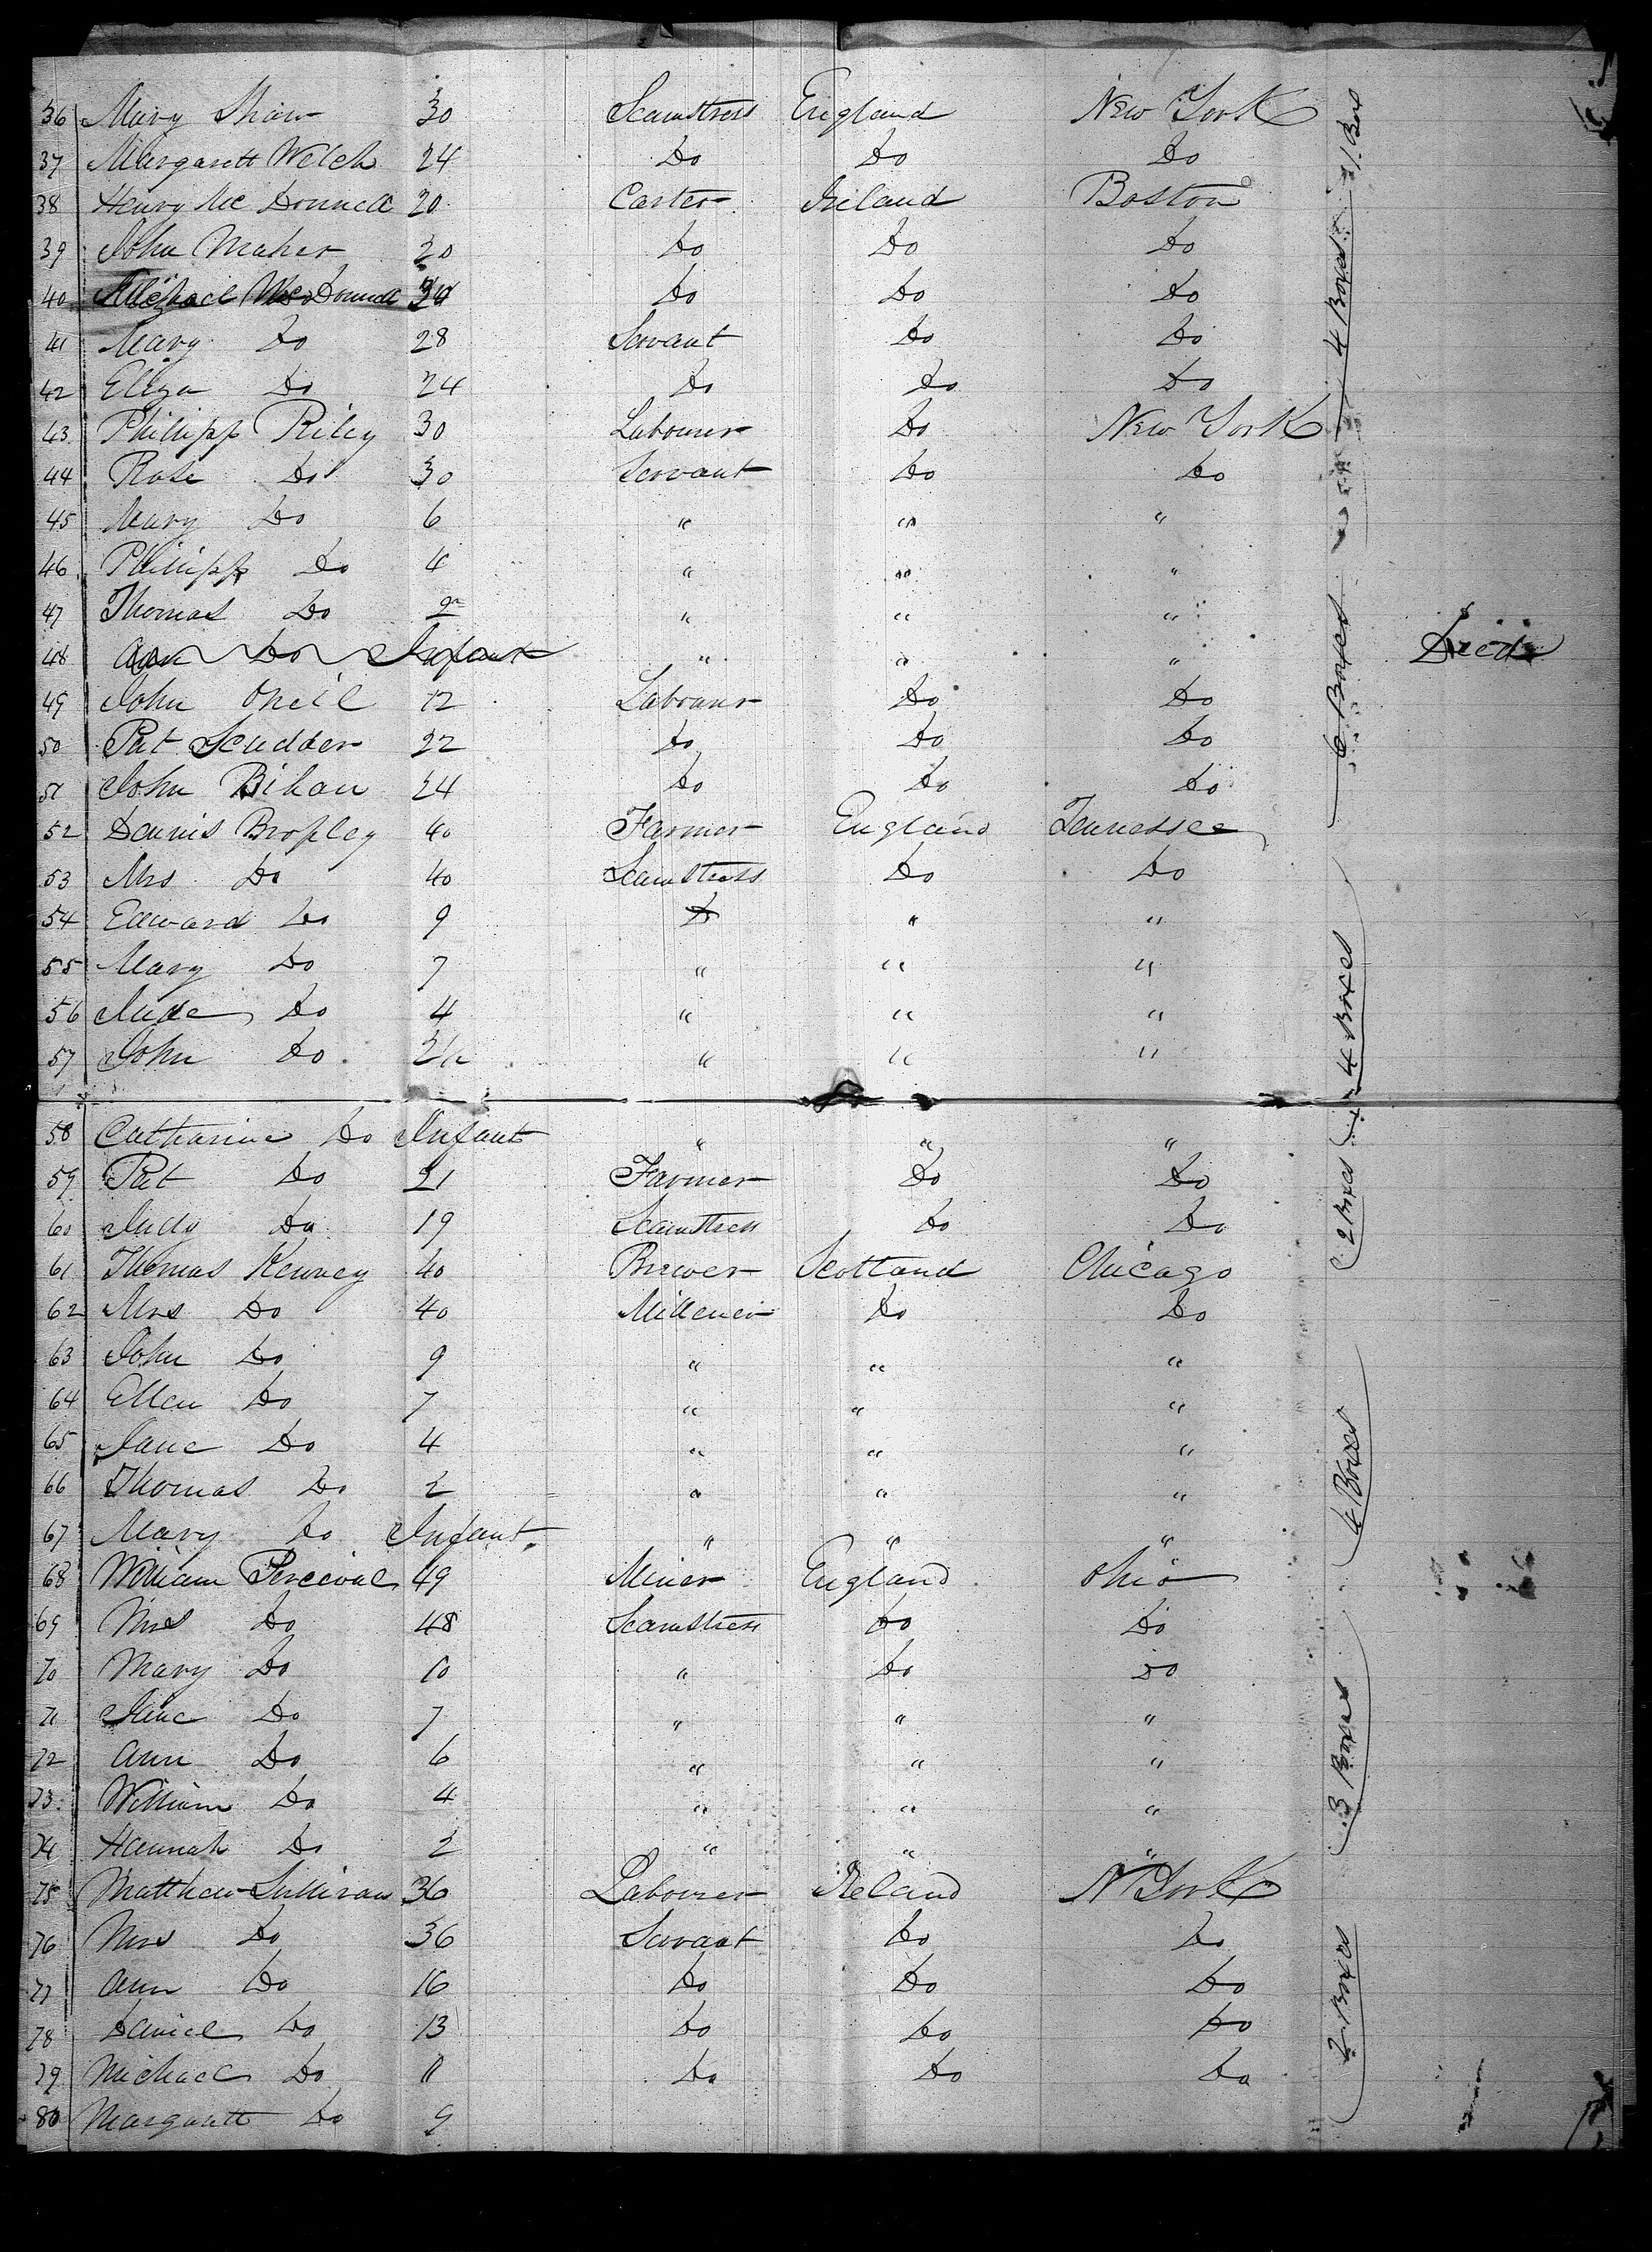 36 Mary Shaw 30 Seamstress England New York
37 Margarett Welch 24 Do Do Do
38 Henry Mc Donnell 20 Carter Ireland Boston
39 John Maher 20 Do Do Do
40 Michael McDonnell 30 Do Do Do
41 Mary Do 28 Servant Do Do
42 Eliza Do 24 Do Do Do
43 Philipp Riley 30 Labourer Do New York
44 Rose Do 30 Servant Do Do
45 Mary Do 6 " " "
46 Philipp Do 4 " " "
47 Thomas Do 2 " " "
48 Ann Do Infant " " " Died
49 John Oneil 12 Labourer Do Do
50 Pat Scudder 22 Do Do Do
51 John Bihan 24 Do Do Do
52 Dennis Brophey 40 Farmer England Tennessee
53 Mrs Do 40 Seamstress Do Do
54 Edward Do 9 " "
55 Mary Do 7 " " "
56 Jude Do 4 " " "
57 John Do " " "
58 Catharine Do Infant " " "
59 Pat Do 21 Farmer Do Do
60 Judy Do 19 Seamstress Do Do
61 Thomas Kenney 40 Brewer Scotland Chicago
62 Mrs Do 40 Millener Do Do
63 John Do 9 " " "
64 Ellen Do 7 " " "
65 Jane Do 4 " " "
66 Thomas Do 2 " " "
67 Mary Do Infant " " "
68 William Percival 49 Miner England Ohio
69 Mrs Do 48 Seamstress Do Do
70 Mary Do 10 " Do Do
71 Jane Do 7 " " "
72 Ann Do 6 " " "
73 William Do 4 " " "
74 Hannah Do 2 " " "
75 Matthew Sullivan 36 Labourer Ireland N York
76 Mrs Do 36 Servant Do Do
77 Ann Do 16 Do Do Do
78 Daniel Do 13 Do Do Do
79 Michael Do 11 Do Do Do
80 Margarett Do 9
1 Box
4 Boxes
6 Boxes
4 Boxes
2 Boxes
4 Boxes
3 Boxes
2 Boxes